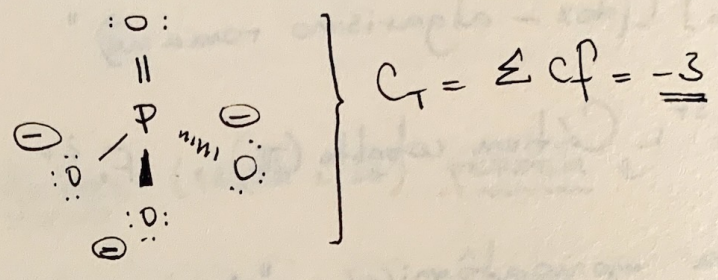 :O:
||
P
⊖ :O: ⊖ :O:
:O:
⊖
C_T = Σ Cf = -3